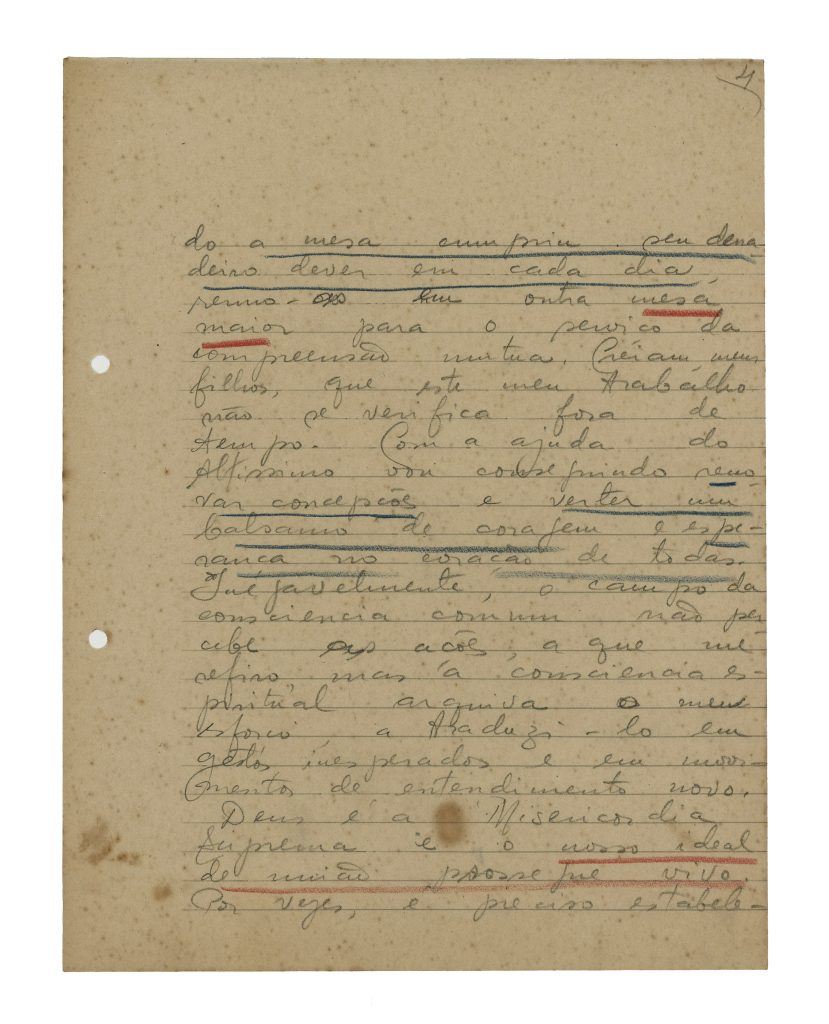 4
do a mesa cumpriu seu derra
deiro dever em cada dia
reuno-os em outra mesa
maior para o serviço da
compreensão mutua. Creiam meus
filhos, que este meu trabalho
não se verifica fora de
tempo. Com a ajuda do
Altissimo vou conseguindo reno
var concepções e verter um
balsamo de coragem e espe-
rança no coração de todas.
Inegavelmente, o campo da
consciencia comum não per
cebe as acões, a que me
refiro mas a consciencia es-
piritual arquiva o meu
esforço, a traduzi-lo em
gestos inesperados e em movi-
mentos de entendimento novo.
Deus é a Misericordia
Suprema e o nosso ideal
de união prossegue vivo.
Por vezes, é preciso estabele-